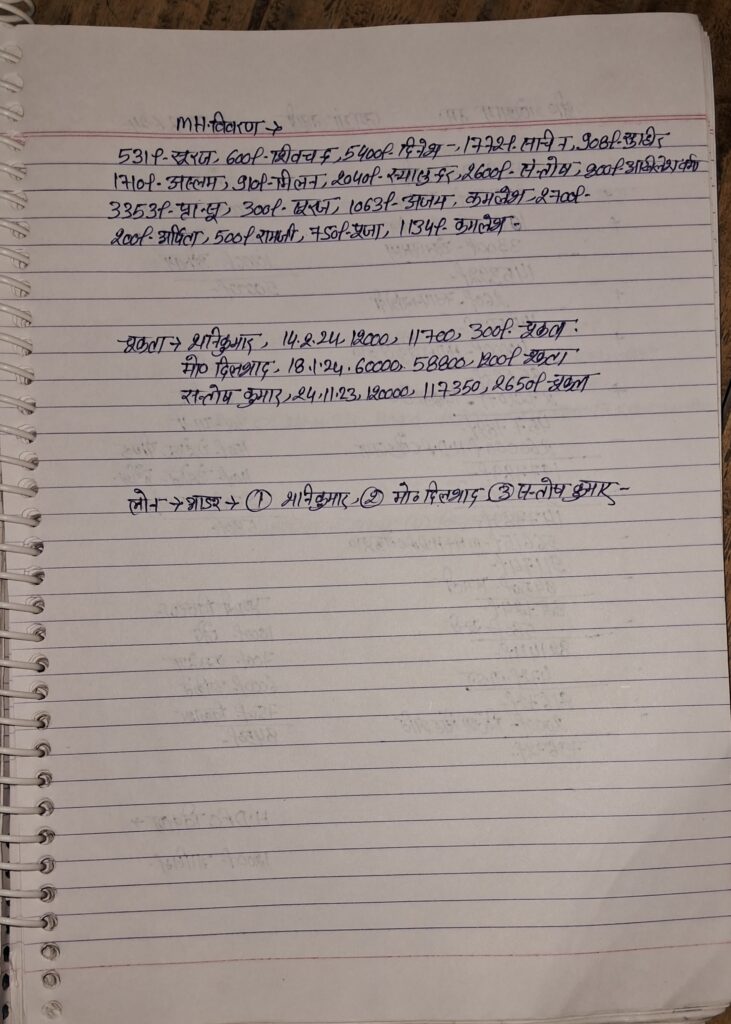 MH. विवरण →
531/- सूरज, 600/- शिवचंद, 5400/- दिनेश -, 1772/- सचिन, 908/-
1710/- असलम, 910/- मिलन, 2040/- 2600/- संतोष, 900/- अखिलेश वर्मा
3353/- 300/- सूरज, 1063/- अजय, कमलेश, 2700/-
200/- अर्पित, 500/- रामजी, 750/- पूजा, 1134/- कमलेश -
चुकता → शनिकुमार, 14.2.24, 12000, 11700, 300/- चुकता.
मो० दिलशाद, 18.1.24, 60000, 58800, 1200/- चुकता
सन्तोष कुमार, 24.11.23, 120000, 117350, 2650/- चुकता
लोन → → ① शनिकुमार, ② मो० दिलशाद ③ सन्तोष कुमार -